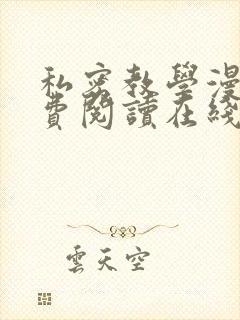 私密教學漫
費閱讀在綫
雲天空